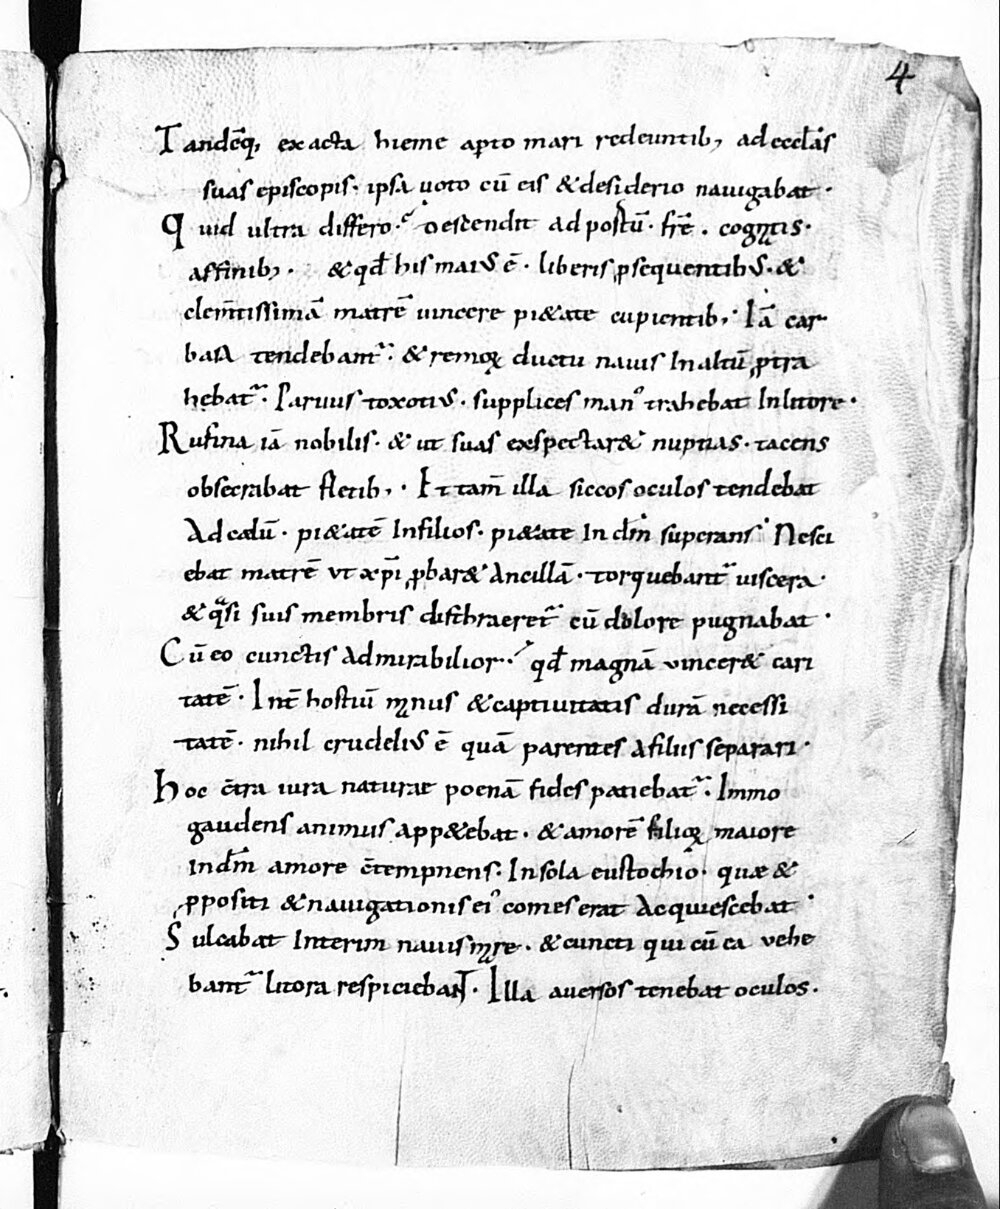 4
Tandē q;, exacta hieme apto mari redeuntib; ad eccl̄as
suas episcopis· ipsa uoto cū eis & desiderio nauigabat·
Quid ultra differo·? Descendit ad portū· fr̄e· cognatis·
affinib;· & qd̄ his maius ē· liberis ꝓsequentibus· &
clem̄tissimā matrē uincere pi&ate cupientib;· Iā car
basa tendebant᷑· & remoꝝ ductu nauis In altū ꝓtra
hebat᷑· Paruus toxotius· supplices man᷒ trahebat In litore·
Rufina iā nobilis· & ut suas exspectar& nuptias· tacens
obsecrabat fletib;· Et tam̄ illa siccos oculos tendebat
Ad celū· pi&atē In filios· pi&ate In dm̄ superans· Nesci
ebat matrē ut xp̄i ꝓbar& Ancillā· torquebant᷑ uiscera·
& qͣsi suis membris disthraeret᷑ cū dolore pugnabat·
Cū eo cunctis Admirabilior·· qd̄ magnā uincer& cari
tatē· Int̄ hostiū man᷒ & captiuitatis durā necessi
tatē· nihil crudelius ē quā parentes A filiis separari·
hoc c̄tra iura naturae poenā fides patiebat᷑· Immo
gaudens animus app&ebat· & amorē filioꝝ maiore
in dm̄ amore c̄tempnens· In sola eustochio· quæ &
ꝓpositi & nauigationis ei᷒ comes erat Acquiescebat·
Sulcabat Interim nauis mare· & cuncti qui cū ea uehe
bant᷑ litora respiciebant· Illa auersos tenebat oculos·